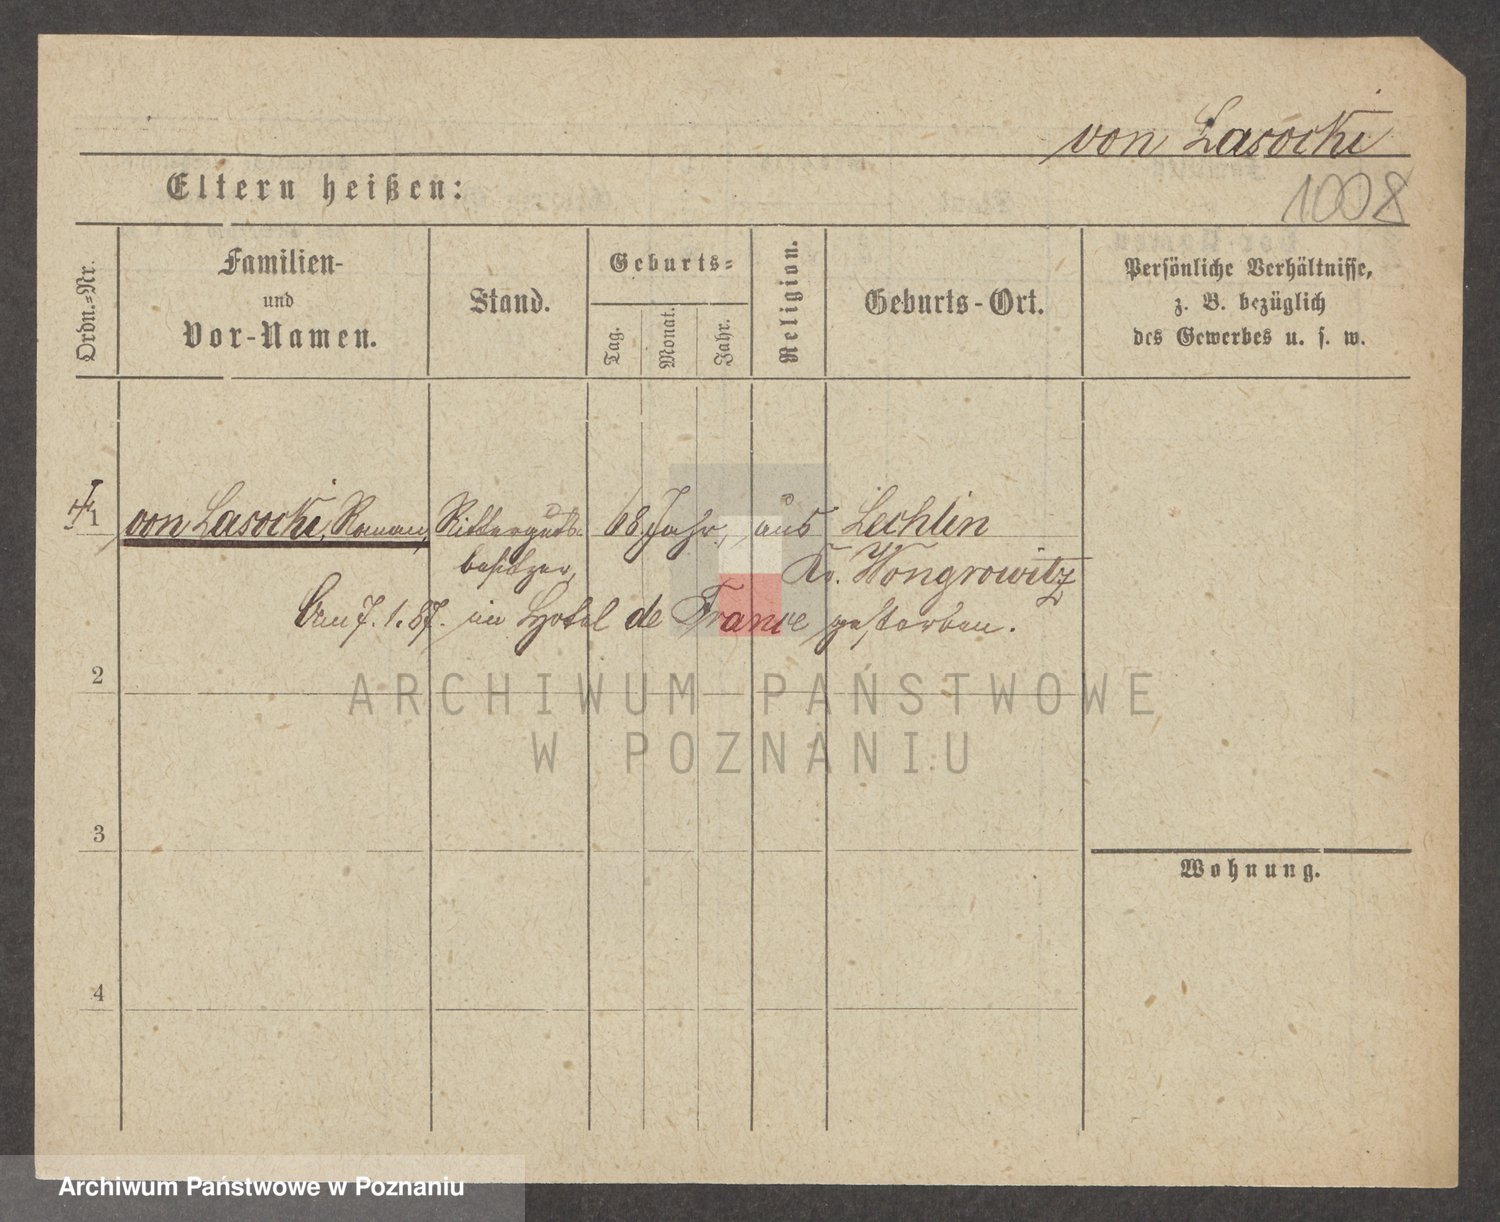 von Lasocki
1008
Eltern heißen:
Ordn.=Nr.
Familien-
und
Vor-Namen.
Stand.
Geburts=
Tag.
Monat.
Jahr.
Religion.
Geburts-Ort.
Persönliche Verhältnisse,
z. B. bezüglich
des Gewerbes u. s. w.
1 von Lasocki, Roman, Ritterguts- 68 Jahr, aus Lechlin
besitzer, Kr. Wongrowitz
Am 7. 1. 87. im Hotel de France gestorben.
2
3
4
Wohnung.
ARCHIWUM PAŃSTWOWE
W POZNANIU
Archiwum Państwowe w Poznaniu